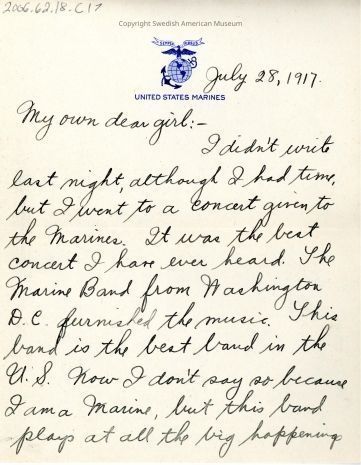 2006.62.18.C17
Copyright Swedish American Museum
SEMPER FIDELIS
UNITED STATES MARINES
July 28, 1917.
My own dear girl:-
I didn't write
last night, although I had time,
but I went to a concert given to
the Marines. It was the best
concert I have ever heard. The
Marine Band from Washington
D.C. furnished the music. This
band is the best band in the
U.S. Now I don't say so because
I am a Marine, but this band
plays at all the big happening